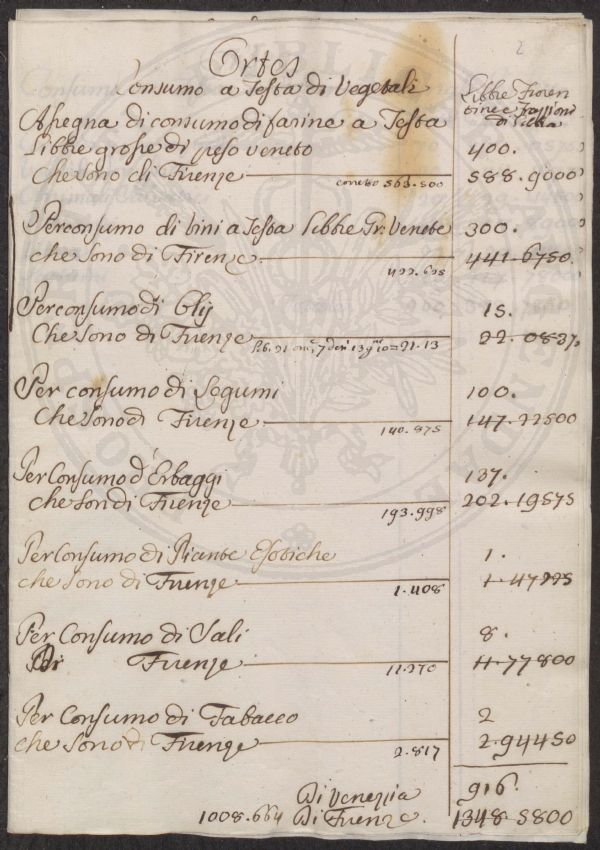 2
Ortes
Consumo a Testa di Vegetali
Libbre Fioren
tine e
Assegna di consumo di farine a Testa
Libbre grosse di peso veneto 400.
Che Sono di Firenze 563.500 588.9000
Per consumo di vini a Testa Libbre Gr. Venete 300.
che Sono di Firenze 422.625 441.6750.
Per consumo di Olij 15.
Che Sono di Firenze 21.13 22.0837.
Per consumo di Legumi 100.
Che Sono di Firenze 140.875 147.22500
Per Consumo d'Erbaggi 137.
che son di Firenze 193.998 202.19575
Per Consumo di Piante Esotiche 1.
che sono di Firenze 1.408 1.47225
Per Consumo di Sali 8.
Di Firenze 11.270 11.77800
Per Consumo di Tabacco 2
che sono di Firenze 2.817 2.94450
Di Venezzia 916.
1008.664 Di Firenze. 1348.5800